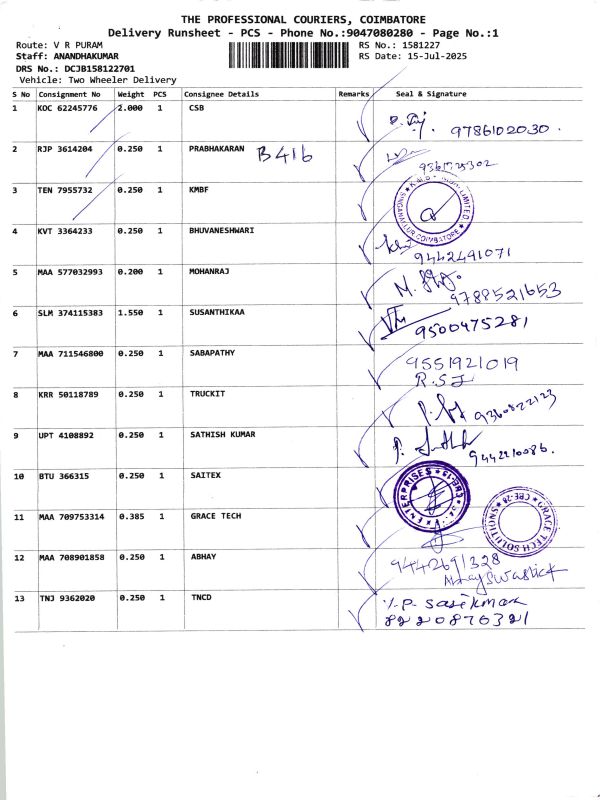 THE PROFESSIONAL COURIERS, COIMBATORE
Delivery Runsheet - PCS - Phone No.:9047080280 - Page No.:1
Route: V R PURAM RS No.: 1581227
Staff: ANANDHAKUMAR RS Date: 15-Jul-2025
DRS No.: DCJB158122701
Vehicle: Two Wheeler Delivery
S No Consignment No Weight PCS Consignee Details Remarks Seal & Signature
1 KOC 62245776 2.000 1 CSB
9786102030.
2 RJP 3614204 0.250 1 PRABHAKARAN B416
3 TEN 7955732 0.250 1 KMBF
LIMITED COIMBATORE
4 KVT 3364233 0.250 1 BHUVANESHWARI
9442491071
5 MAA 577032993 0.200 1 MOHANRAJ
9788521653
6 SLM 374115383 1.550 1 SUSANTHIKAA
9500475281
7 MAA 711546800 0.250 1 SABAPATHY 9551921019
R.S.J
8 KRR 50118789 0.250 1 TRUCKIT
9360822123
9 UPT 4108892 0.250 1 SATHISH KUMAR
9442210086.
10 BTU 366315 0.250 1 SAITEX
ENTERPRISES
11 MAA 709753314 0.385 1 GRACE TECH
GRACE TECH SOLUTIONS
12 MAA 708901858 0.250 1 ABHAY 9442691328
13 TNJ 9362020 0.250 1 TNCD
8220876321